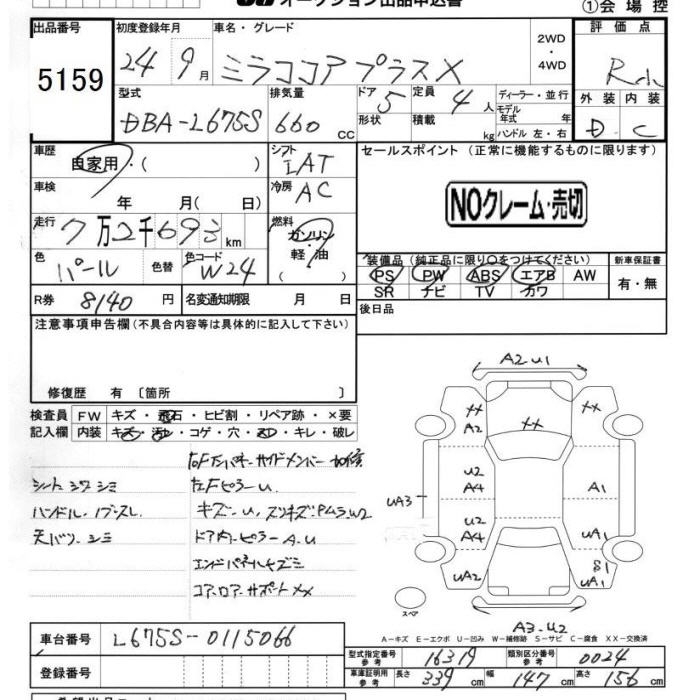 オークション出品申込書
①会場控
出品番号
5159
初度登録年月
24年9月
車名・グレード
ミラココアプラスX
2WD
・
4WD
評価点
外装 内装
D C
型式
DBA-L675S
排気量
660 cc
ドア 5
形状
定員 4人
積載 kg
ディーラー・並行
モデル年式 年
ハンドル 左・右
車歴
自家用・( )
シフト
IAT
車検
年 月( 日)
冷房
AC
走行
7万2千693km
燃料
ガソリン・
軽・油
( )
色
パール
色替
色コード
W24
R券 8140円
名変通知期限 月 日
セールスポイント (正常に機能するものに限ります)
NOクレーム・売切
装備品(純正品に限り○をつけてください)
PS PW ABS エアB AW
SR ナビ TV カワ
新車保証書
有・無
後日品
注意事項申告欄(不具合内容等は具体的に記入して下さい)
修復歴 有〔箇所 〕
検査員
記入欄
FW キズ・飛石・ヒビ割・リペア跡・×要
内装 キズ・汚レ・コゲ・穴・スレ・キレ・破レ
シート シワ シミ
ハンドル
天バリ シミ
左Fピラーu
キズ・u、
ドア内・ピラーA・u
エンドパネルキズミ
コアロアサポートXX
A2u1
XX
A2
XX
XX
U2
A4
A1
UA3
U2
A4
UA1
UA2
S1
UA1
スペア
A3-U2
A-キズ E-エクボ U-凹み W-補修跡 S-サビ C-腐食 XX-交換済
車台番号 L675S-0115066
登録番号
型式指定番号
参考
16319
類別区分番号
参考
0024
車庫証明用
参考
長さ 339cm
幅 147cm
高さ 156cm